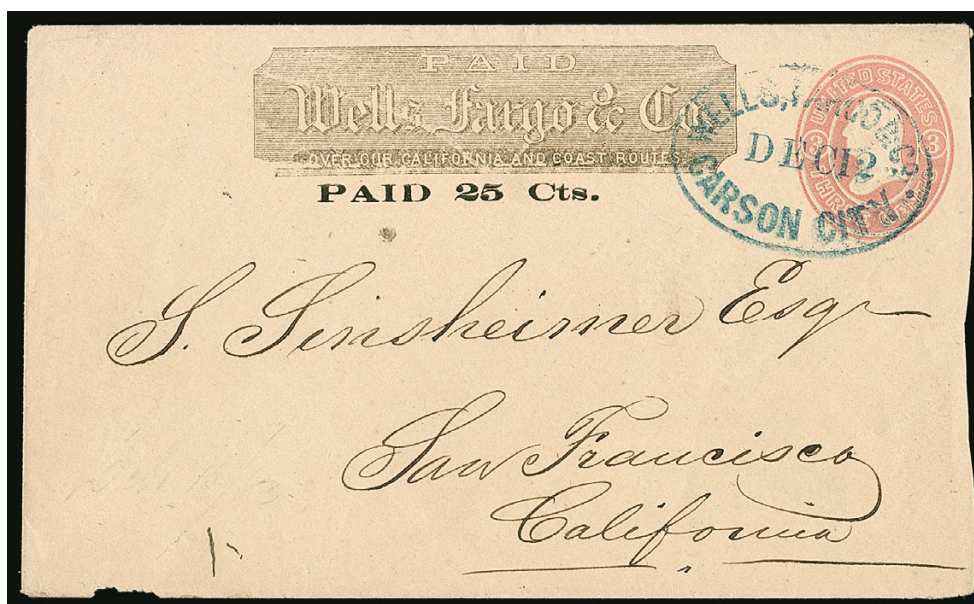 PAID
Wells, Fargo & Co
OVER OUR CALIFORNIA AND COAST ROUTES.
PAID 25 Cts.
WELLS, FARGO & CO.
DEC 12
CARSON CITY
UNITED STATES
3 3
THREE CENTS
S. Sinsheimer Esqr
San Francisco
California